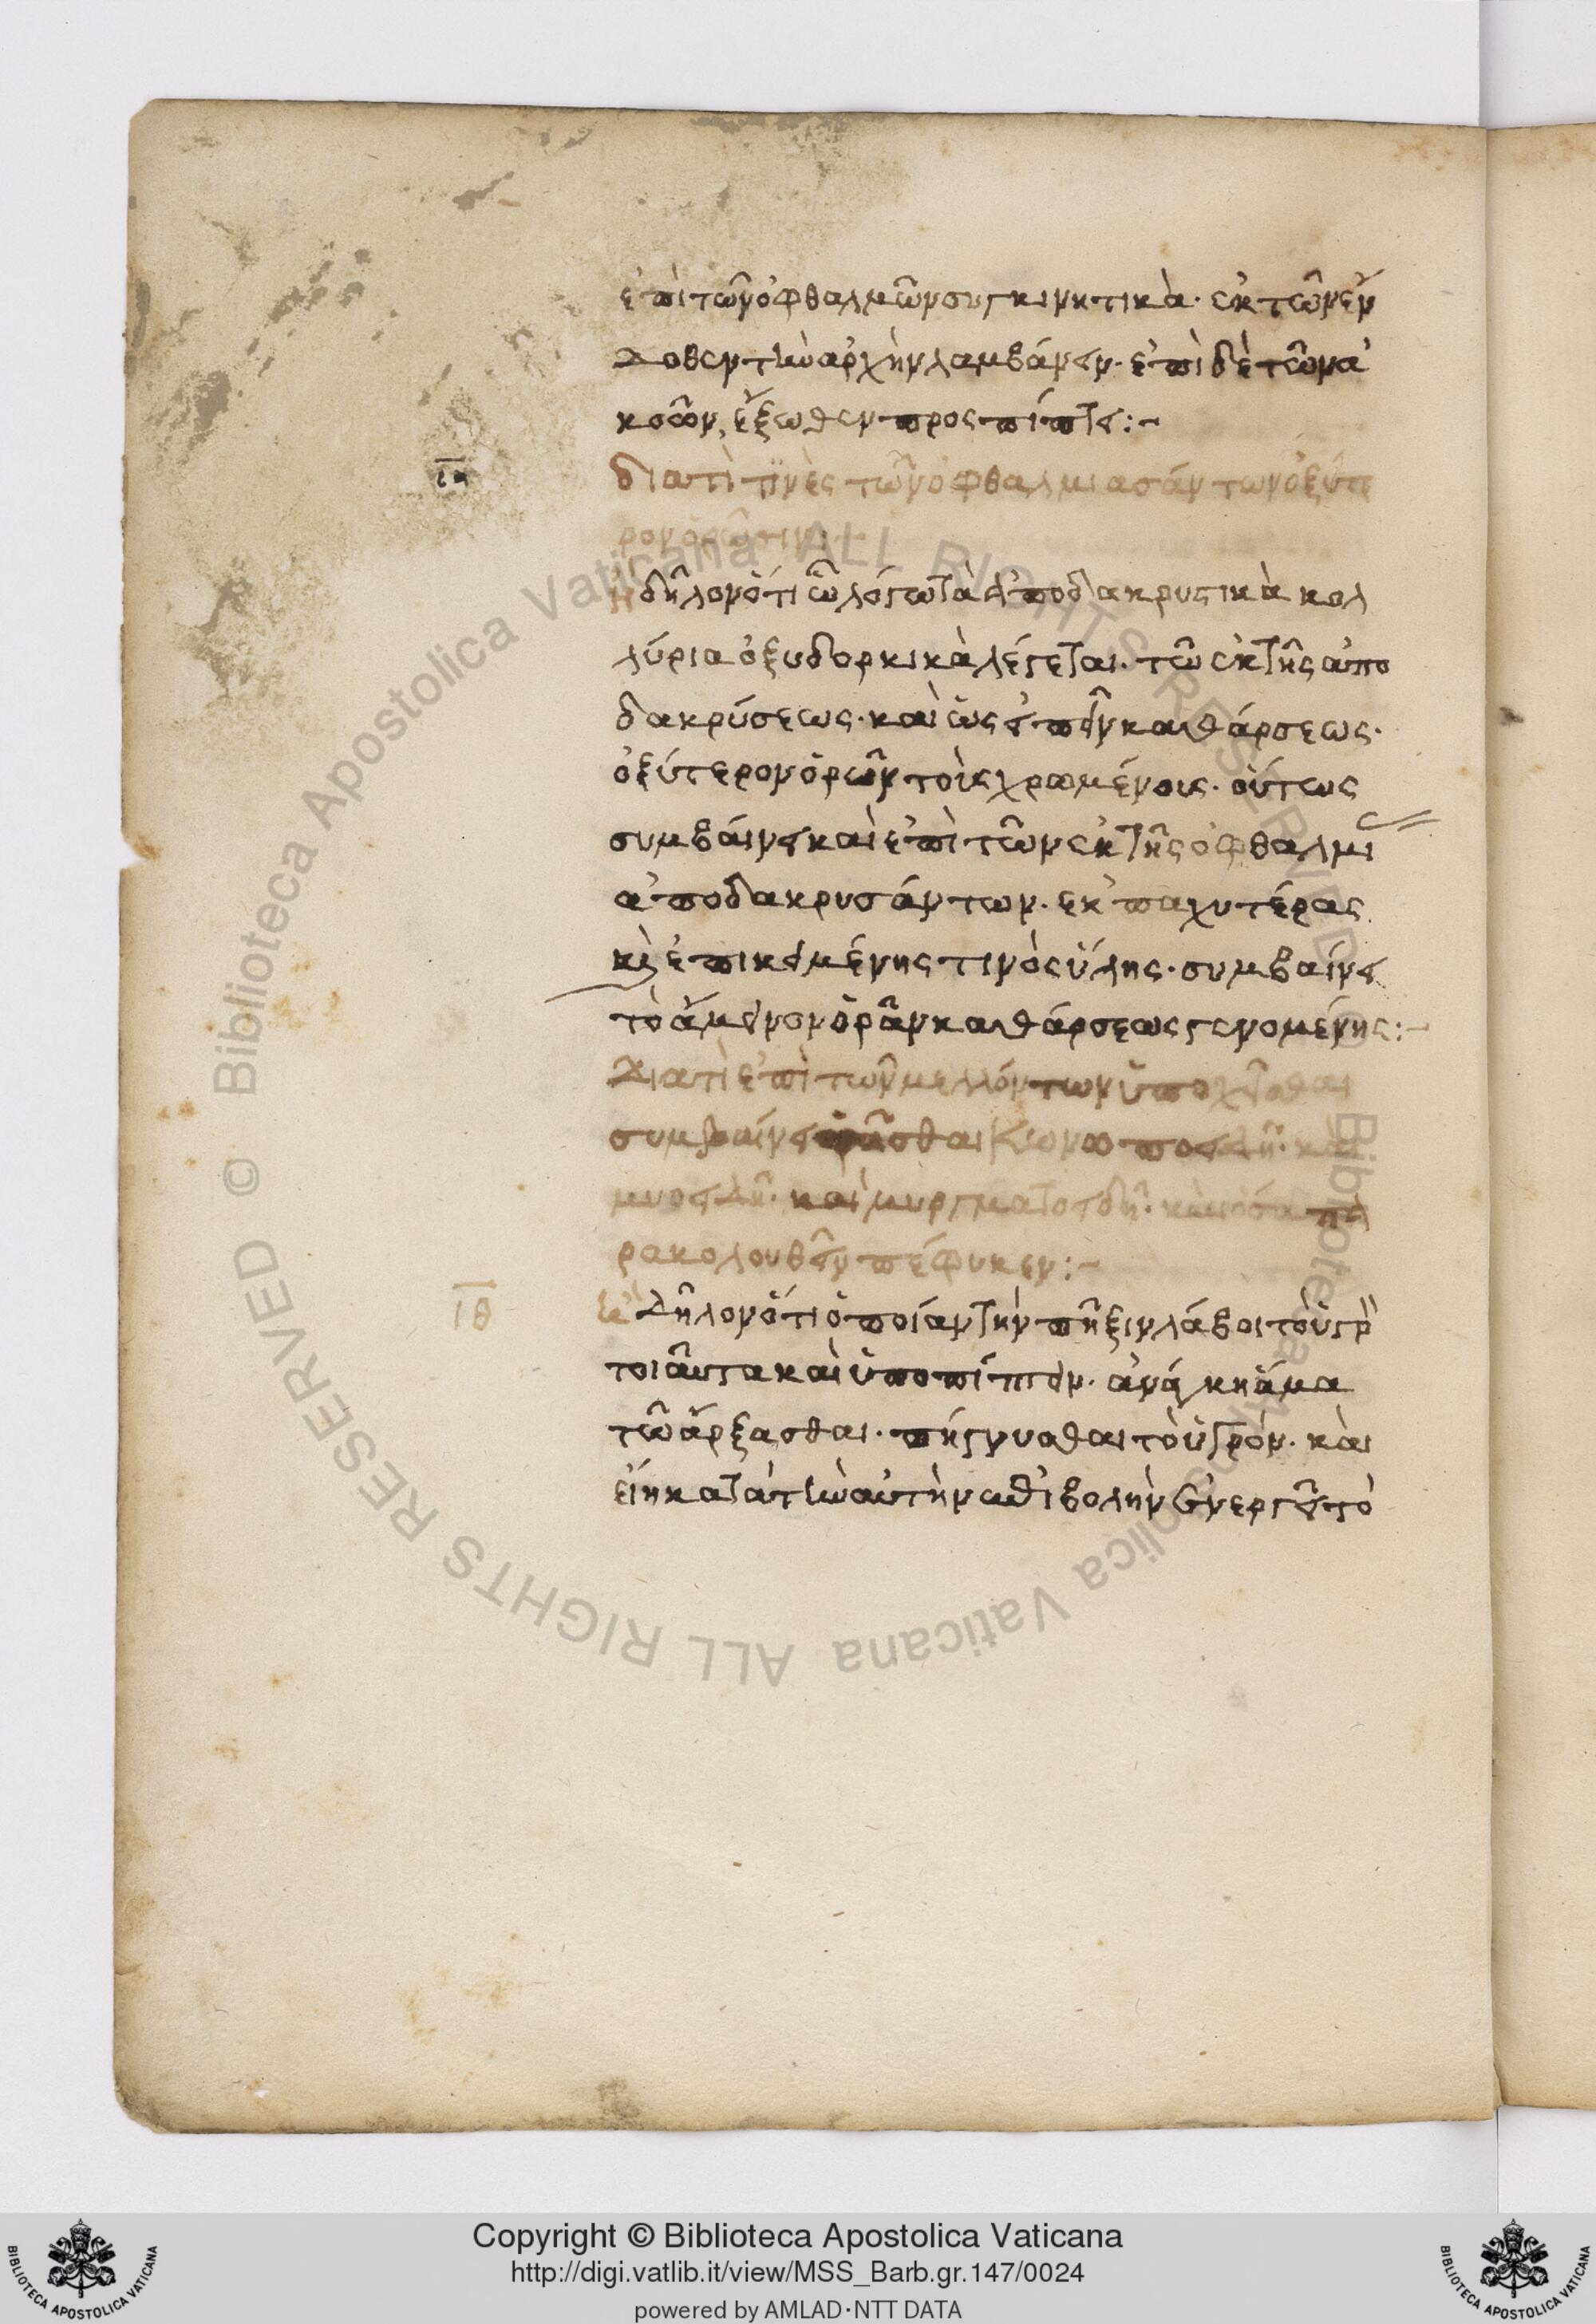 ἐπὶ τῶν ὀφθαλμῶν συγκινητικὰ· ἐκ τῶν ἔν
δοθεν τὴν ἀρχὴν λαμβάνειν· ἐπὶ δὲ τῶν ἀ
κοῶν, ἔξωθεν προσπίπτει:~
ιη
διατὶ τινὲς τῶν ὀφθαλμιασάντων ὀξύτε
ρον ὁρῶσιν:~
ἢ δῆλον ὅτι ᾧ λόγω τὰ ἀποδακρυτικὰ κολ
λύρια ὀξυδορκικὰ λέγεται· τῶ ἐκ τῆς ἀπο
δακρύσεως· καὶ ὡς εἰπεῖν καθάρσεως·
ὀξύτερον ὁρᾶν τοὺς χρωμένους· οὕτως
συμβαίνει καὶ ἐπὶ τῶν ἐκ τῆς ὀφθαλμι
ἀποδακρυσάντων· ἐκ παχυτέρας
καὶ ἐπικειμένης τινὸς ὕλης· συμβαίνει
τὸ ἄμεινον ὁρᾶν καθάρσεως γενομένης:~
Διατὶ ἐπὶ τῶν μελλόντων ὑποχεῖσθαι
συμβαίνει ὁρᾶσθαι κωνωποειδῆ· καὶ
μυοειδῆ· καὶ μαρμαροειδῆ· καὶ ὅσα πα
ρακολουθεῖν πέφυκεν:~
ιθ
Δῆλον ὅτι ὁποίαν τὴν πῆξιν λάβοι τὸ ὑγρ
τοιαῦτα καὶ ὑποπίπτειν· ἀνάγκη ἅμα
τῶ ἄρξασθαι· πήγνυσθαι τὸ ὑγρόν· καὶ
εἴη κατὰ τὴν αὐτὴν ἐπιβολὴν ἐνεργεῖ τὸ
Copyright © Biblioteca Apostolica Vaticana
http://digi.vatlib.it/view/MSS_Barb.gr.147/0024
powered by AMLAD·NTT DATA
© Biblioteca Apostolica Vaticana ALL RIGHTS RESERVED
© Biblioteca Apostolica Vaticana ALL RIGHTS RESERVED
BIBLIOTECA APOSTOLICA VATICANA
BIBLIOTECA APOSTOLICA VATICANA